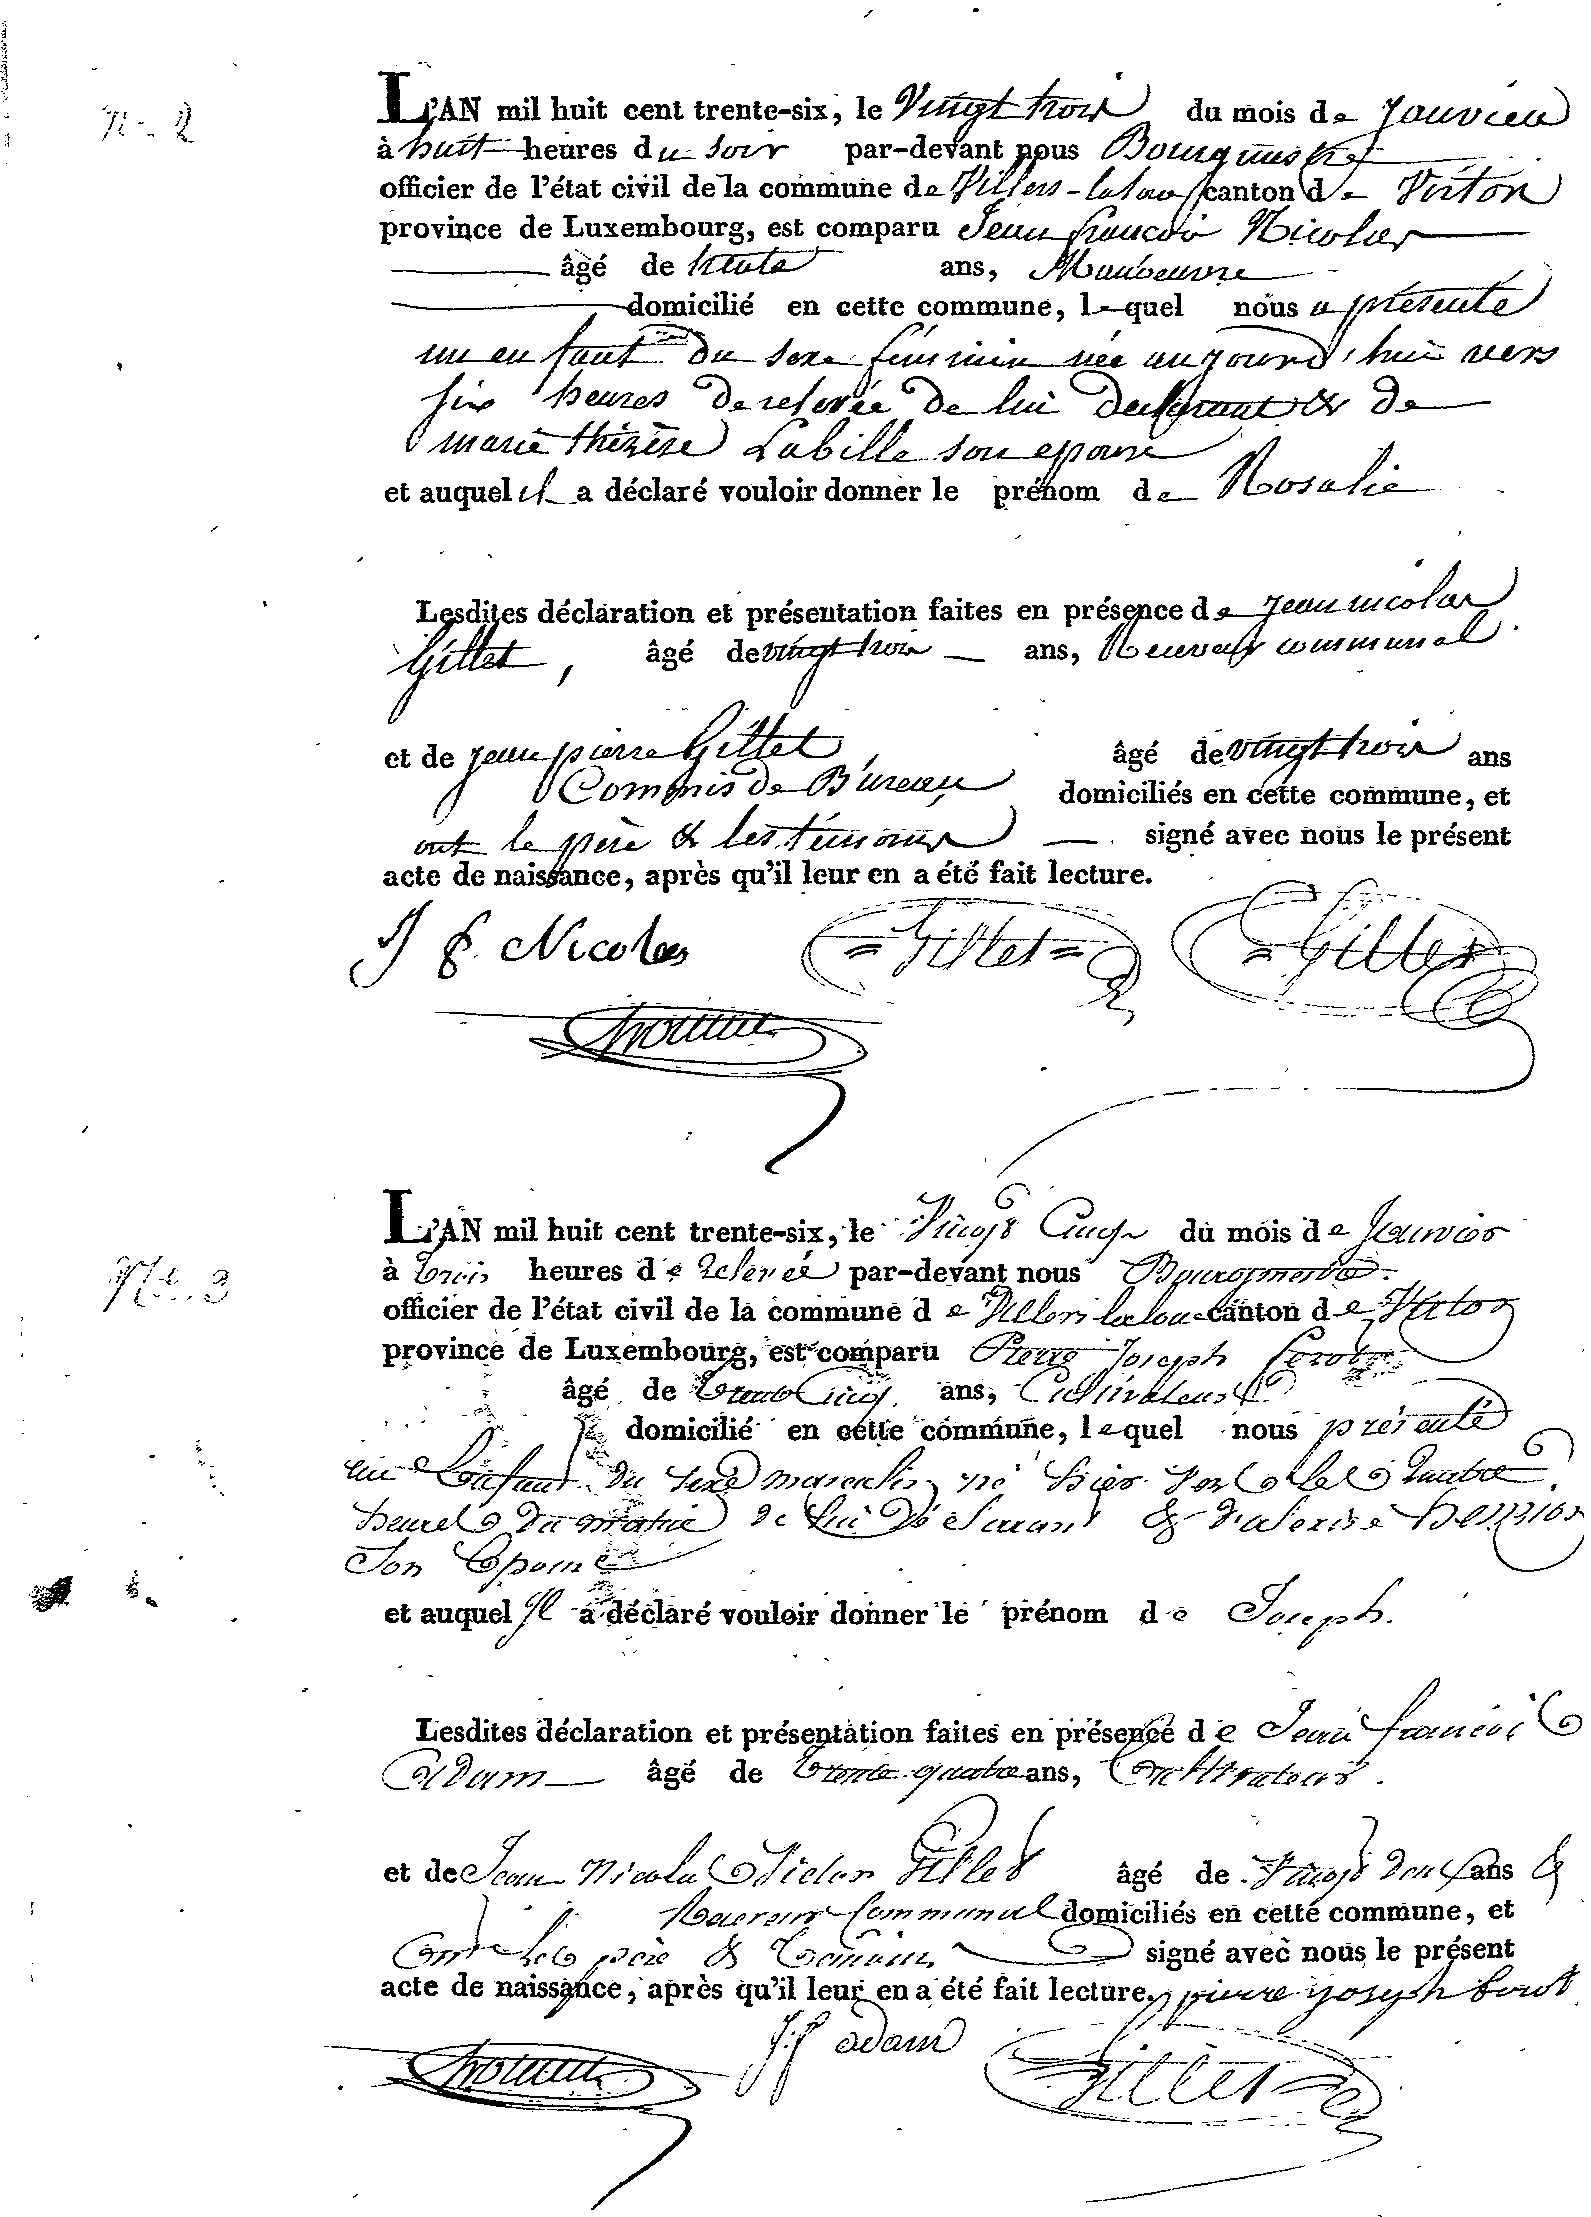 N° 2
L'AN mil huit cent trente-six, le Vingt trois du mois de Janvier
à huit heures du soir par-devant nous Bourgmestre
officier de l'état civil de la commune de Villers-laloue canton de Virton
province de Luxembourg, est comparu Jean françois Nicolas
âgé de trente ans, Manoeuvre
domicilié en cette commune, lequel nous a présenté
un enfant du sexe féminin née aujourd'hui vers
six heures de relevée de lui déclarant & de
marie thérèse Labille son epouse
et auquel il a déclaré vouloir donner le prénom de Rosalie
Lesdites déclaration et présentation faites en présence de jean nicolas
Gillet, âgé de vingt trois ans, Receveur communal
et de jean pierre Gillet âgé de vingt trois ans
Commis de Bureau domiciliés en cette commune, et
ont le père & les témoins signé avec nous le présent
acte de naissance, après qu'il leur en a été fait lecture.
J f. Nicolas =Gillet= =Gillet
N° 3
L'AN mil huit cent trente-six, le Vingt Cinq du mois de Janvier
à trois heures de relevée par-devant nous Bourgmestre
officier de l'état civil de la commune de Villers-laloue canton de Virton
province de Luxembourg, est comparu Pierre Joseph
âgé de trente Cinq ans, Cultivateur
domicilié en cette commune, lequel nous présenté
un Enfant du sexe masculin né hier vers les quatre
heures du matin de lui Déclarant &
Son Epouse
et auquel Il a déclaré vouloir donner le prénom de Joseph.
Lesdites déclaration et présentation faites en présence de Jean françois
Adam âgé de trente quatre ans, Cultivateur
et de Jean Nicolas Victor Gillet âgé de Vingt deux ans &
Receveur Communal domiciliés en cette commune, et
ont les père & témoins signé avec nous le présent
acte de naissance, après qu'il leur en a été fait lecture. pierre joseph
J.f adam Gillet